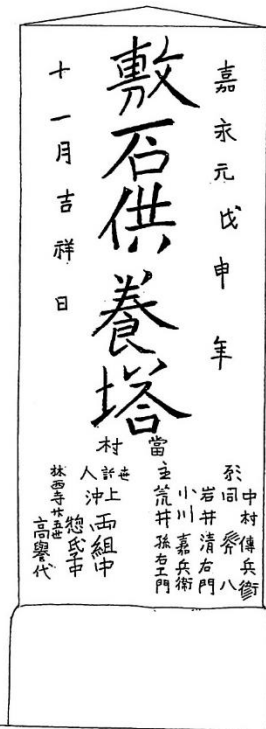 嘉永元戊申年
敷石供養塔
十一月吉祥日
當村
中村傳兵衛
同 八
岩井清右門
小川嘉兵衛
主 荒井孫右エ門
上 沖 両組中
惣氏子中
林西寺廿五世
高譽代